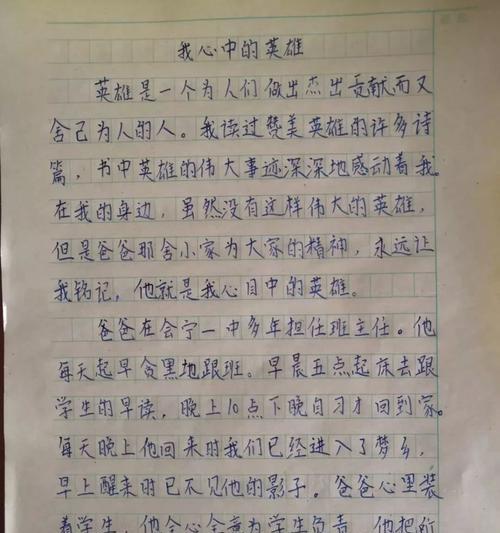 我心中的英雄
英雄是一个为人们做出杰出贡献而又
舍己为人的人。我读过赞美英雄的许多诗
篇，书中英雄的伟大事迹深深地感动着我。
在我的身边，虽然没有这样伟大的英雄，
但是爸爸那舍小家为大家的精神，永远让
我铭记，他就是我心目中的英雄。
爸爸在会宁一中多年担任班主任。他
每天起早贪黑地跟班。早晨五点起床去跟
学生的早读，晚上10点下晚自习才回到家。
每天晚上他回来时我们已经进入了梦乡，
早上醒来时已不见他的影子。爸爸心里装
着学生，他全心全意为学生负责，他把所